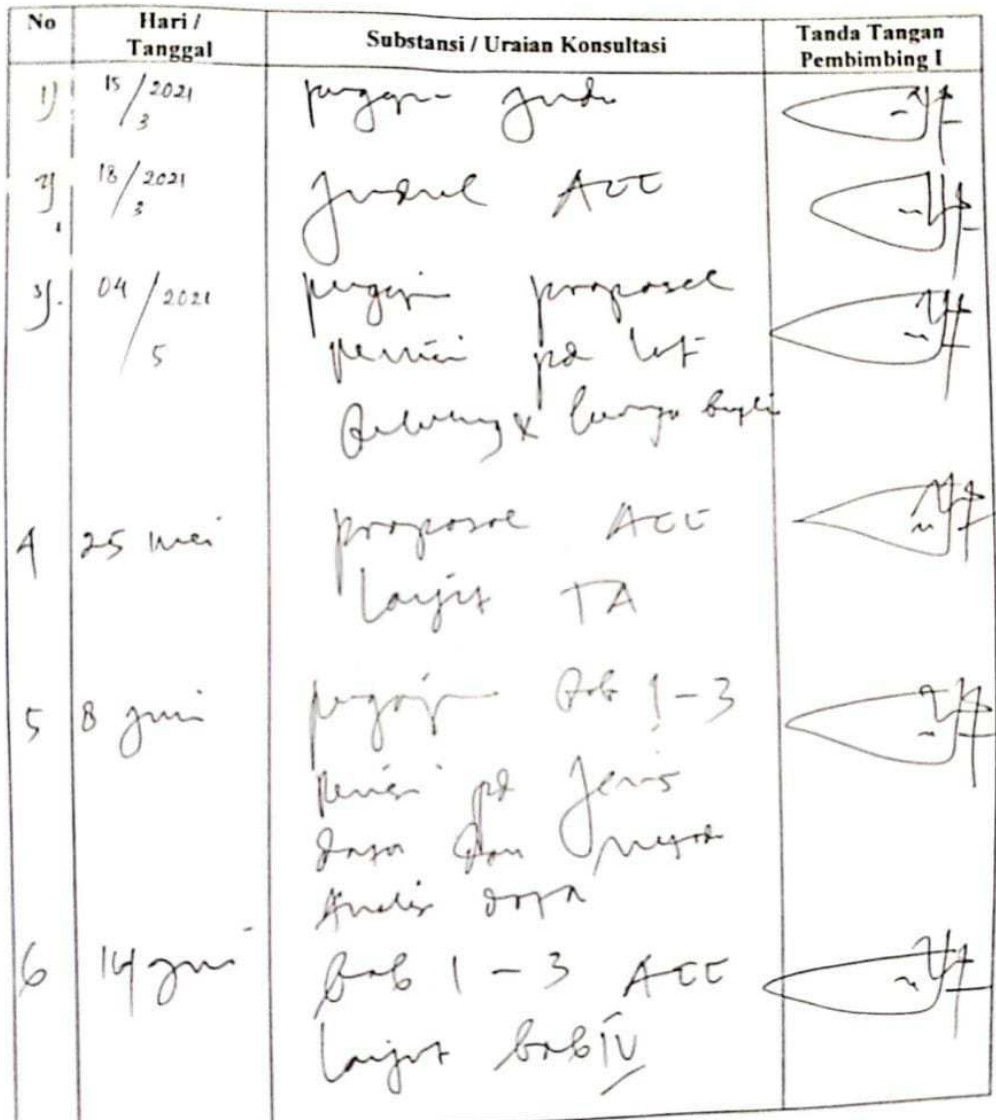 No Hari / Tanggal Substansi / Uraian Konsultasi Tanda Tangan Pembimbing I
1) 15/3 2021 pengajuan judul
2) 18/3 2021 Judul ACC
3). 04/5 2021 pengajuan proposal
revisi pd
4 25 mei proposal ACC
lanjut TA
5 8 juni pengajuan Bab 1-3
revisi pd Jenis
data dan
Analisis data
6 14 juni bab 1-3 ACC
lanjut bab IV